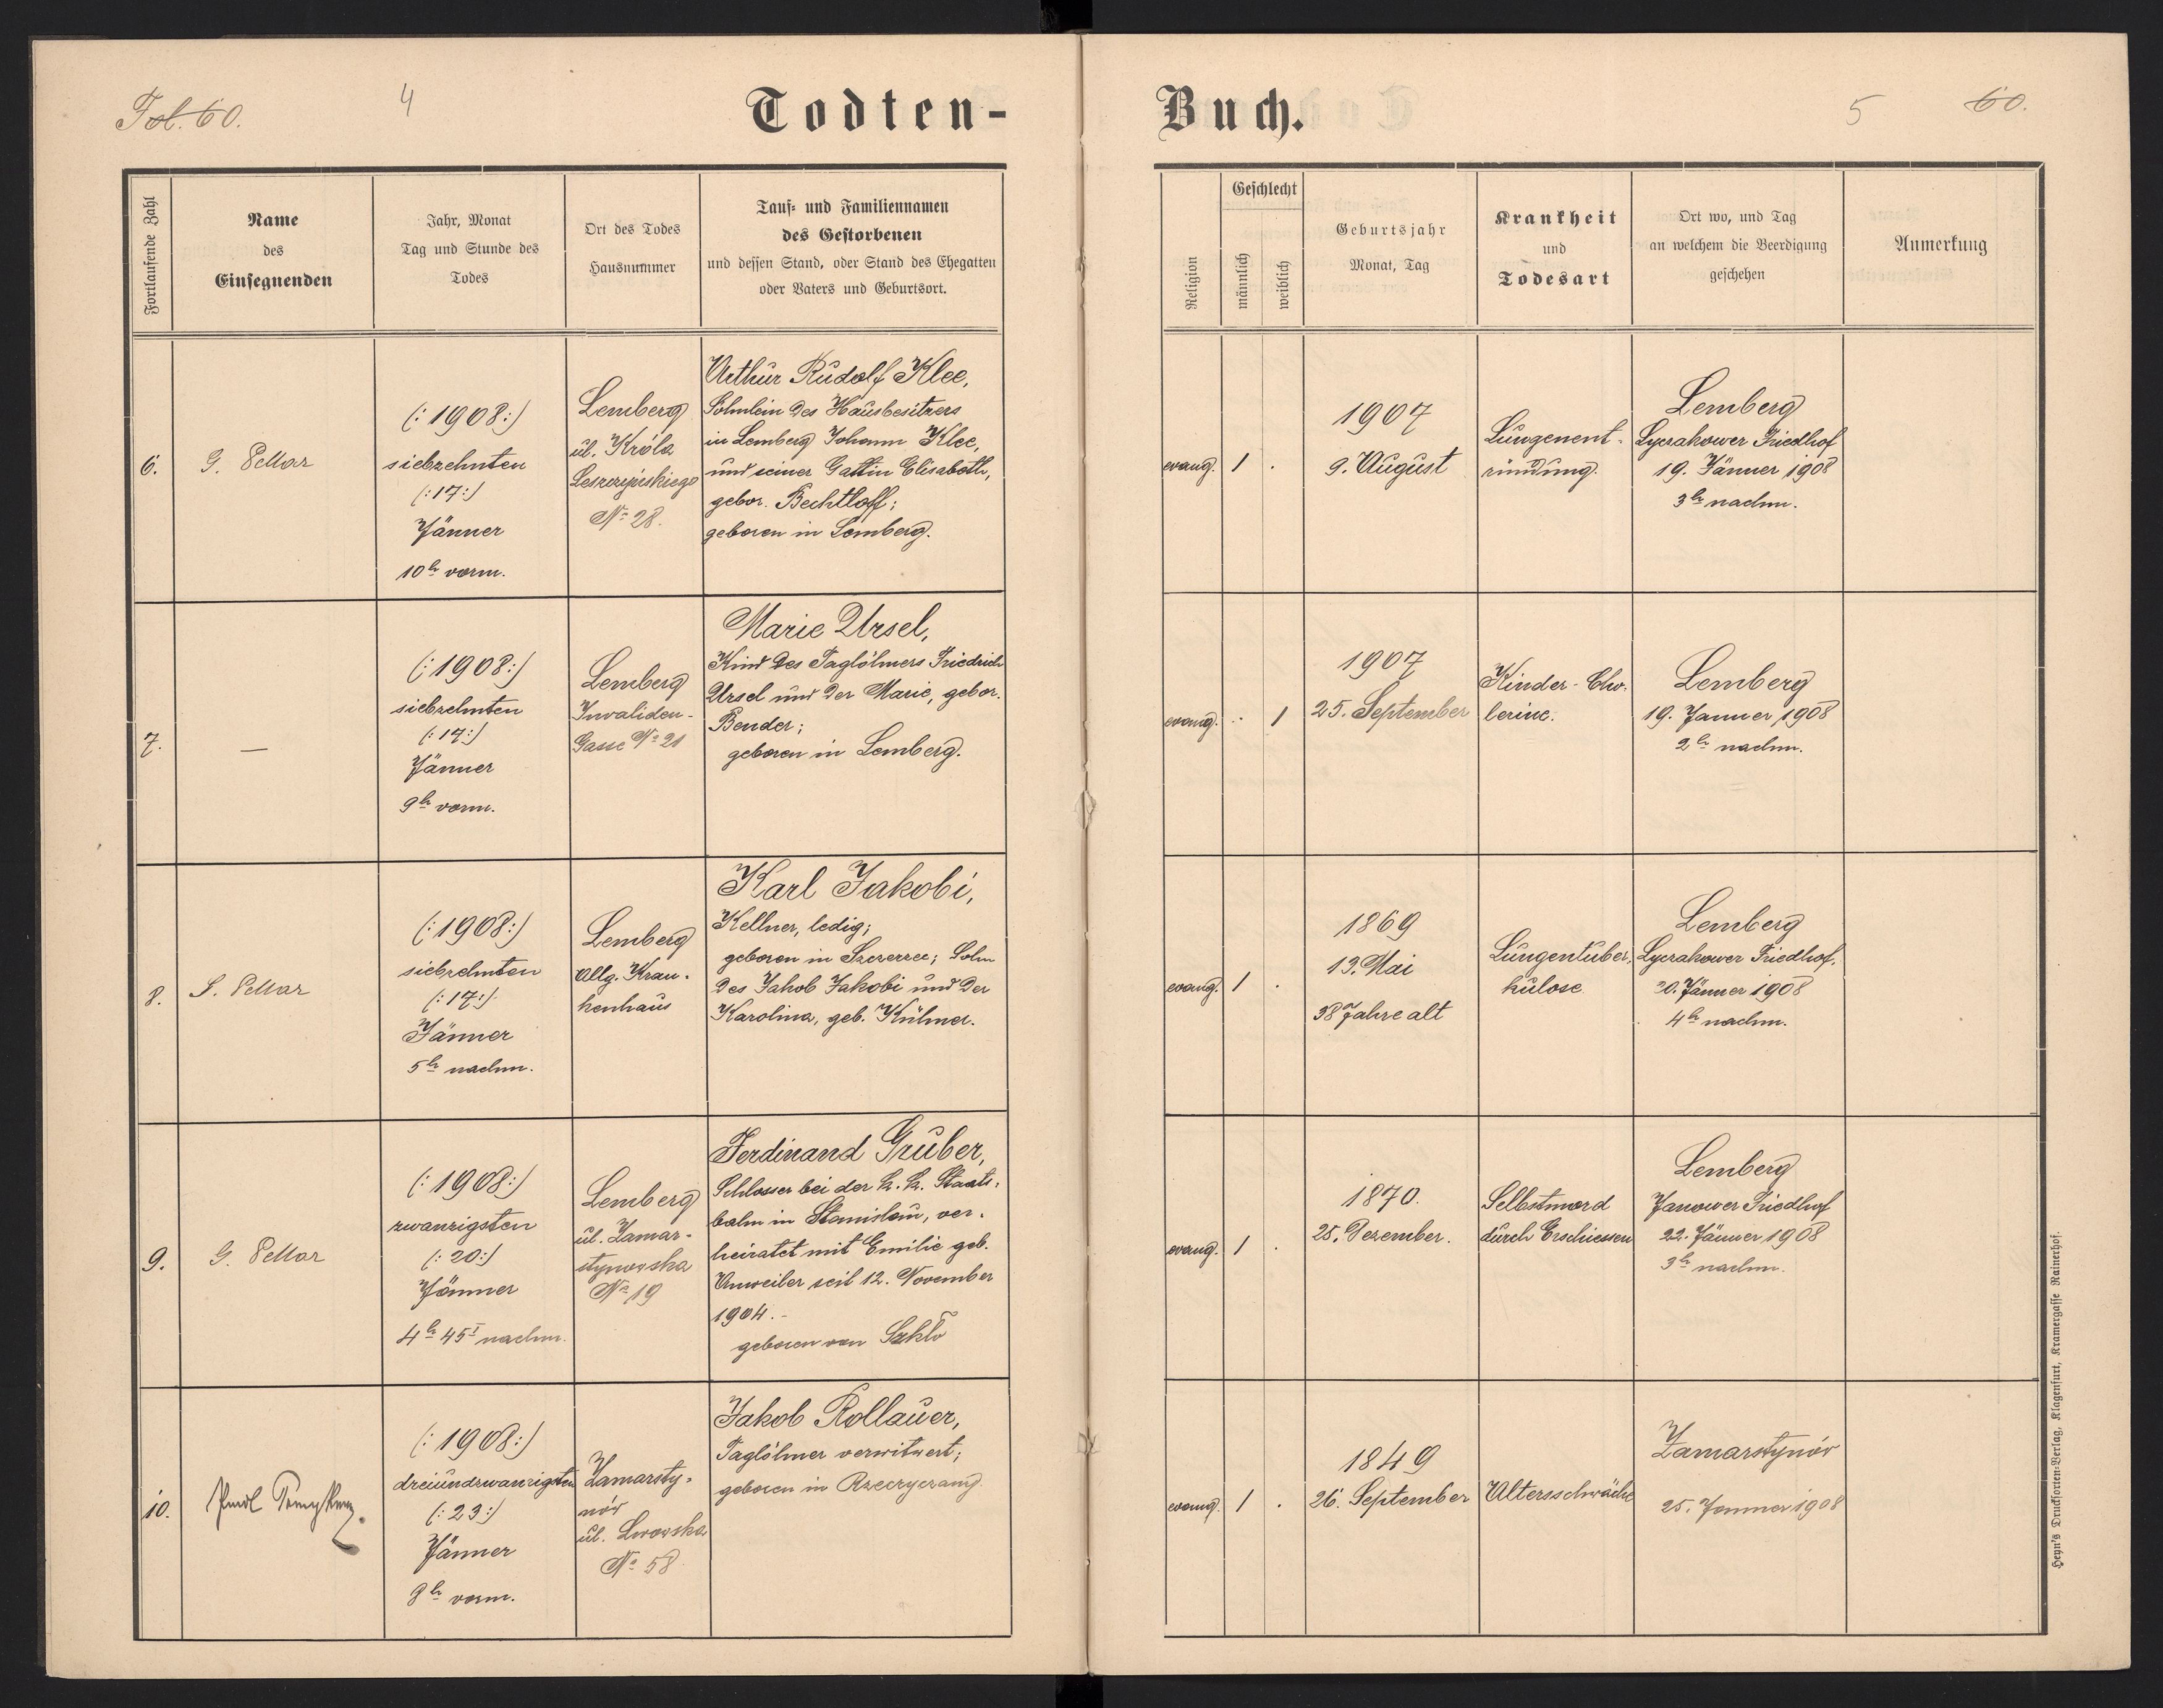 Fol. 60.
4
Todten-
Buch.
5
60.
Fortlaufende Zahl
Name
des
Einsegnenden
Jahr, Monat
Tag und Stunde des
Todes
Ort des Todes
Hausnummer
Tauf- und Familiennamen
des Gestorbenen
und dessen Stand, oder Stand des Ehegatten
oder Vaters und Geburtsort.
Religion
Geschlecht
männlich
weiblich
Geburtsjahr
Monat, Tag
Krankheit
und
Todesart
Ort wo, und Tag
an welchem die Beerdigung
geschehen
Anmerkung
6.
G. Pellar
(:1908:)
siebzehnten
(:17:)
Jänner
10h vorm.
Lemberg
ul. Króla
Leszczyńskiego
No 28.
Arthur Rudolf Klee,
Söhnlein des Hausbesitzers
in Lemberg Johann Klee,
und seiner Gattin Elisabeth,
gebor. Bechtloff;
geboren in Lemberg.
evang.
1
.
1907
9. August
Lungenent-
zündung.
Lemberg
Lyczakower Friedhof
19. Jänner 1908
3h nachm.
7.
—
(:1908:)
siebzehnten
(:17:)
Jänner
9h vorm.
Lemberg
Invaliden-
Gasse No 21
Marie Ursel,
Kind des Taglöhners Friedrich
Ursel und der Marie, gebor.
Bender;
geboren in Lemberg.
evang.
.
1
1907
25. September
Kinder-Cho-
lerine.
Lemberg
19. Janner 1908
2h nachm.
8.
S. Pellar
(:1908:)
siebzehnten
(:17:)
Jänner
5h nachm.
Lemberg
Allg. Kran-
kenhaus
Karl Jakobi,
Kellner, ledig;
geboren in Szczerzec; Sohn
des Jakob Jakobi und der
Karolina, geb. Kühner.
evang.
1
.
1869
13. Mai
38 Jahre alt
Lungentuber-
kulose
Lemberg
Lyczakower Friedhof,
20. Jänner 1908
4h nachm.
9.
G. Pellar
(:1908:)
zwanzigsten
(:20:)
Jänner
4h 45I nachm.
Lemberg
ul. Zamar-
stynowska
No 19
Ferdinand Gruber,
Schlosser bei der k. k. Staats-
bahn in Stanislau, ver-
heiratet mit Emilie geb.
Unweiler seit 12. November
1904.-
geboren von Szkło
evang.
1
.
1870.
25. Dezember.
Selbstmord
durch Erschiessen
Lemberg
Janower Friedhof
22. Jänner 1908
3h nachm.
10.
(:1908:)
dreiundzwanzigsten
(:23:)
Jänner
8h vorm.
Zamarsty-
nów
ul. Lwowska
No 58
Jakob Rollauer,
Taglöhner verwitwert;
geboren in
evang.
1
.
1849
26. September
Altersschwäche
Zamarstynów
25. Janner 1908
Heyn's Drucksorten-Verlag, Klagenfurt, Kramergasse Rainerhof.